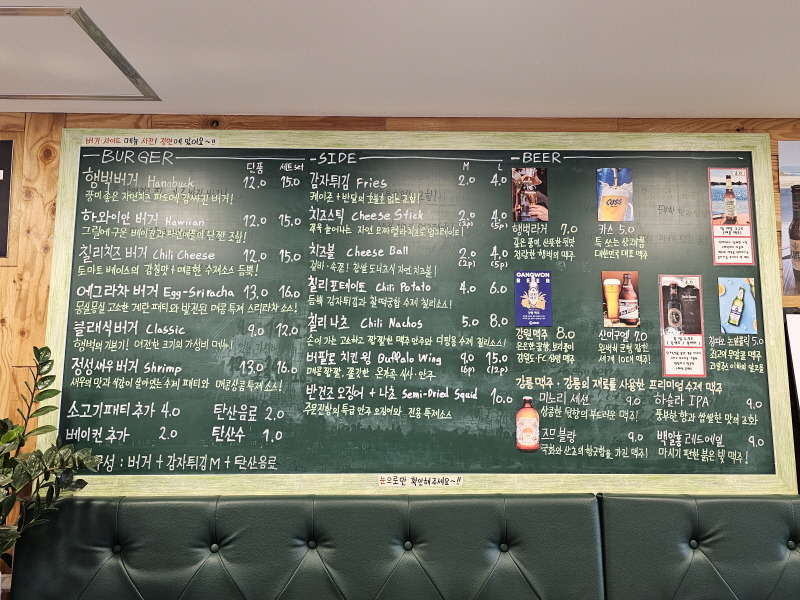 버거 사이드 메뉴 사진! 정면에 있어요~!!
BURGER
단품 세트set
행벅버거 Hangbuck 12.0 15.0
풍미 좋은 자연치즈
하와이안 버거 Hawiian 12.0 15.0
그릴에 구운 베이컨과 파인애플의 단짠 조합!
칠리치즈 버거 Chili Cheese 12.0 15.0
토마토 베이스의 감칠맛+매운한 수제소스 듬뿍!
에그라차 버거 Egg-Sriracha 13.0 16.0
몽실몽실 고소한 계란 패티와 발견된 매콤 특제 스리라차 소스!
클래식버거 Classic 9.0 12.0
행벅버거의 기본기! 여전한 크기의 가성비 메뉴!
정성새우 버거 Shrimp 13.0 16.0
새우의 맛과 식감이 살아있는 수제 패티와 매콤상콤 특제 소스!
소고기패티 추가 4.0 탄산음료 2.0
베이컨 추가 2.0 탄산수 1.0
구성 : 버거 + 감자튀김M + 탄산음료
SIDE
M L
감자튀김 Fries 2.0 4.0
치즈스틱 Cheese Stick 2.0 (2p) 4.0 (5p)
치즈볼 Cheese Ball 2.0 (2p) 4.0 (5p)
겉바·속쫀! 찹쌀 도너츠식 자연 치즈볼!
칠리 포테이토 Chili Potato 4.0 6.0
듬뿍 감자튀김과 찰떡궁합 수제 칠리소스!
칠리 나쵸 Chili Nachos 5.0 8.0
손이 가는 고소하고 짭짤한 맥주 안주와 디핑용 수제 칠리소스!
버팔로 치킨 윙 Buffalo Wing 9.0 (6p) 15.0 (12p)
매콤 짭짤, 쫄깃한 온가족 식사·안주
반건조 오징어 + 나쵸 Semi-Dried Squid 10.0
주문진항의 특급 안주 오징어와 전용 특제소스
BEER
행벅라거 7.0
깊은 풍미, 산뜻한 뒷맛
청량한 행벅의 맥주
카스 5.0
톡 쏘는 상쾌함
대한민국 대표 맥주
Cass
GANGWON BEER
강원맥주 8.0
은은한 꿀향, 보리풍미
강원도 FC 상생 맥주
산미구엘 7.0
완벽한 균형 잡힌
세계 10대 맥주!
5.0
최고의 무알콜 맥주
강릉맥주 · 강릉의 재료를 사용한 프리미엄 수제 맥주
미노리 세션 9.0
상큼한 뒷향의 부드러운 맥주!
하슬라 IPA 9.0
풍부한 향과 쌉쌀한 맛의 조화
즈므블랑 9.0
국화와 산초의 향긋함을 가진 맥주!
백일홍 레드에일 9.0
마시기 편한 붉은 빛 맥주!
눈으로만 확인해주세요~!!